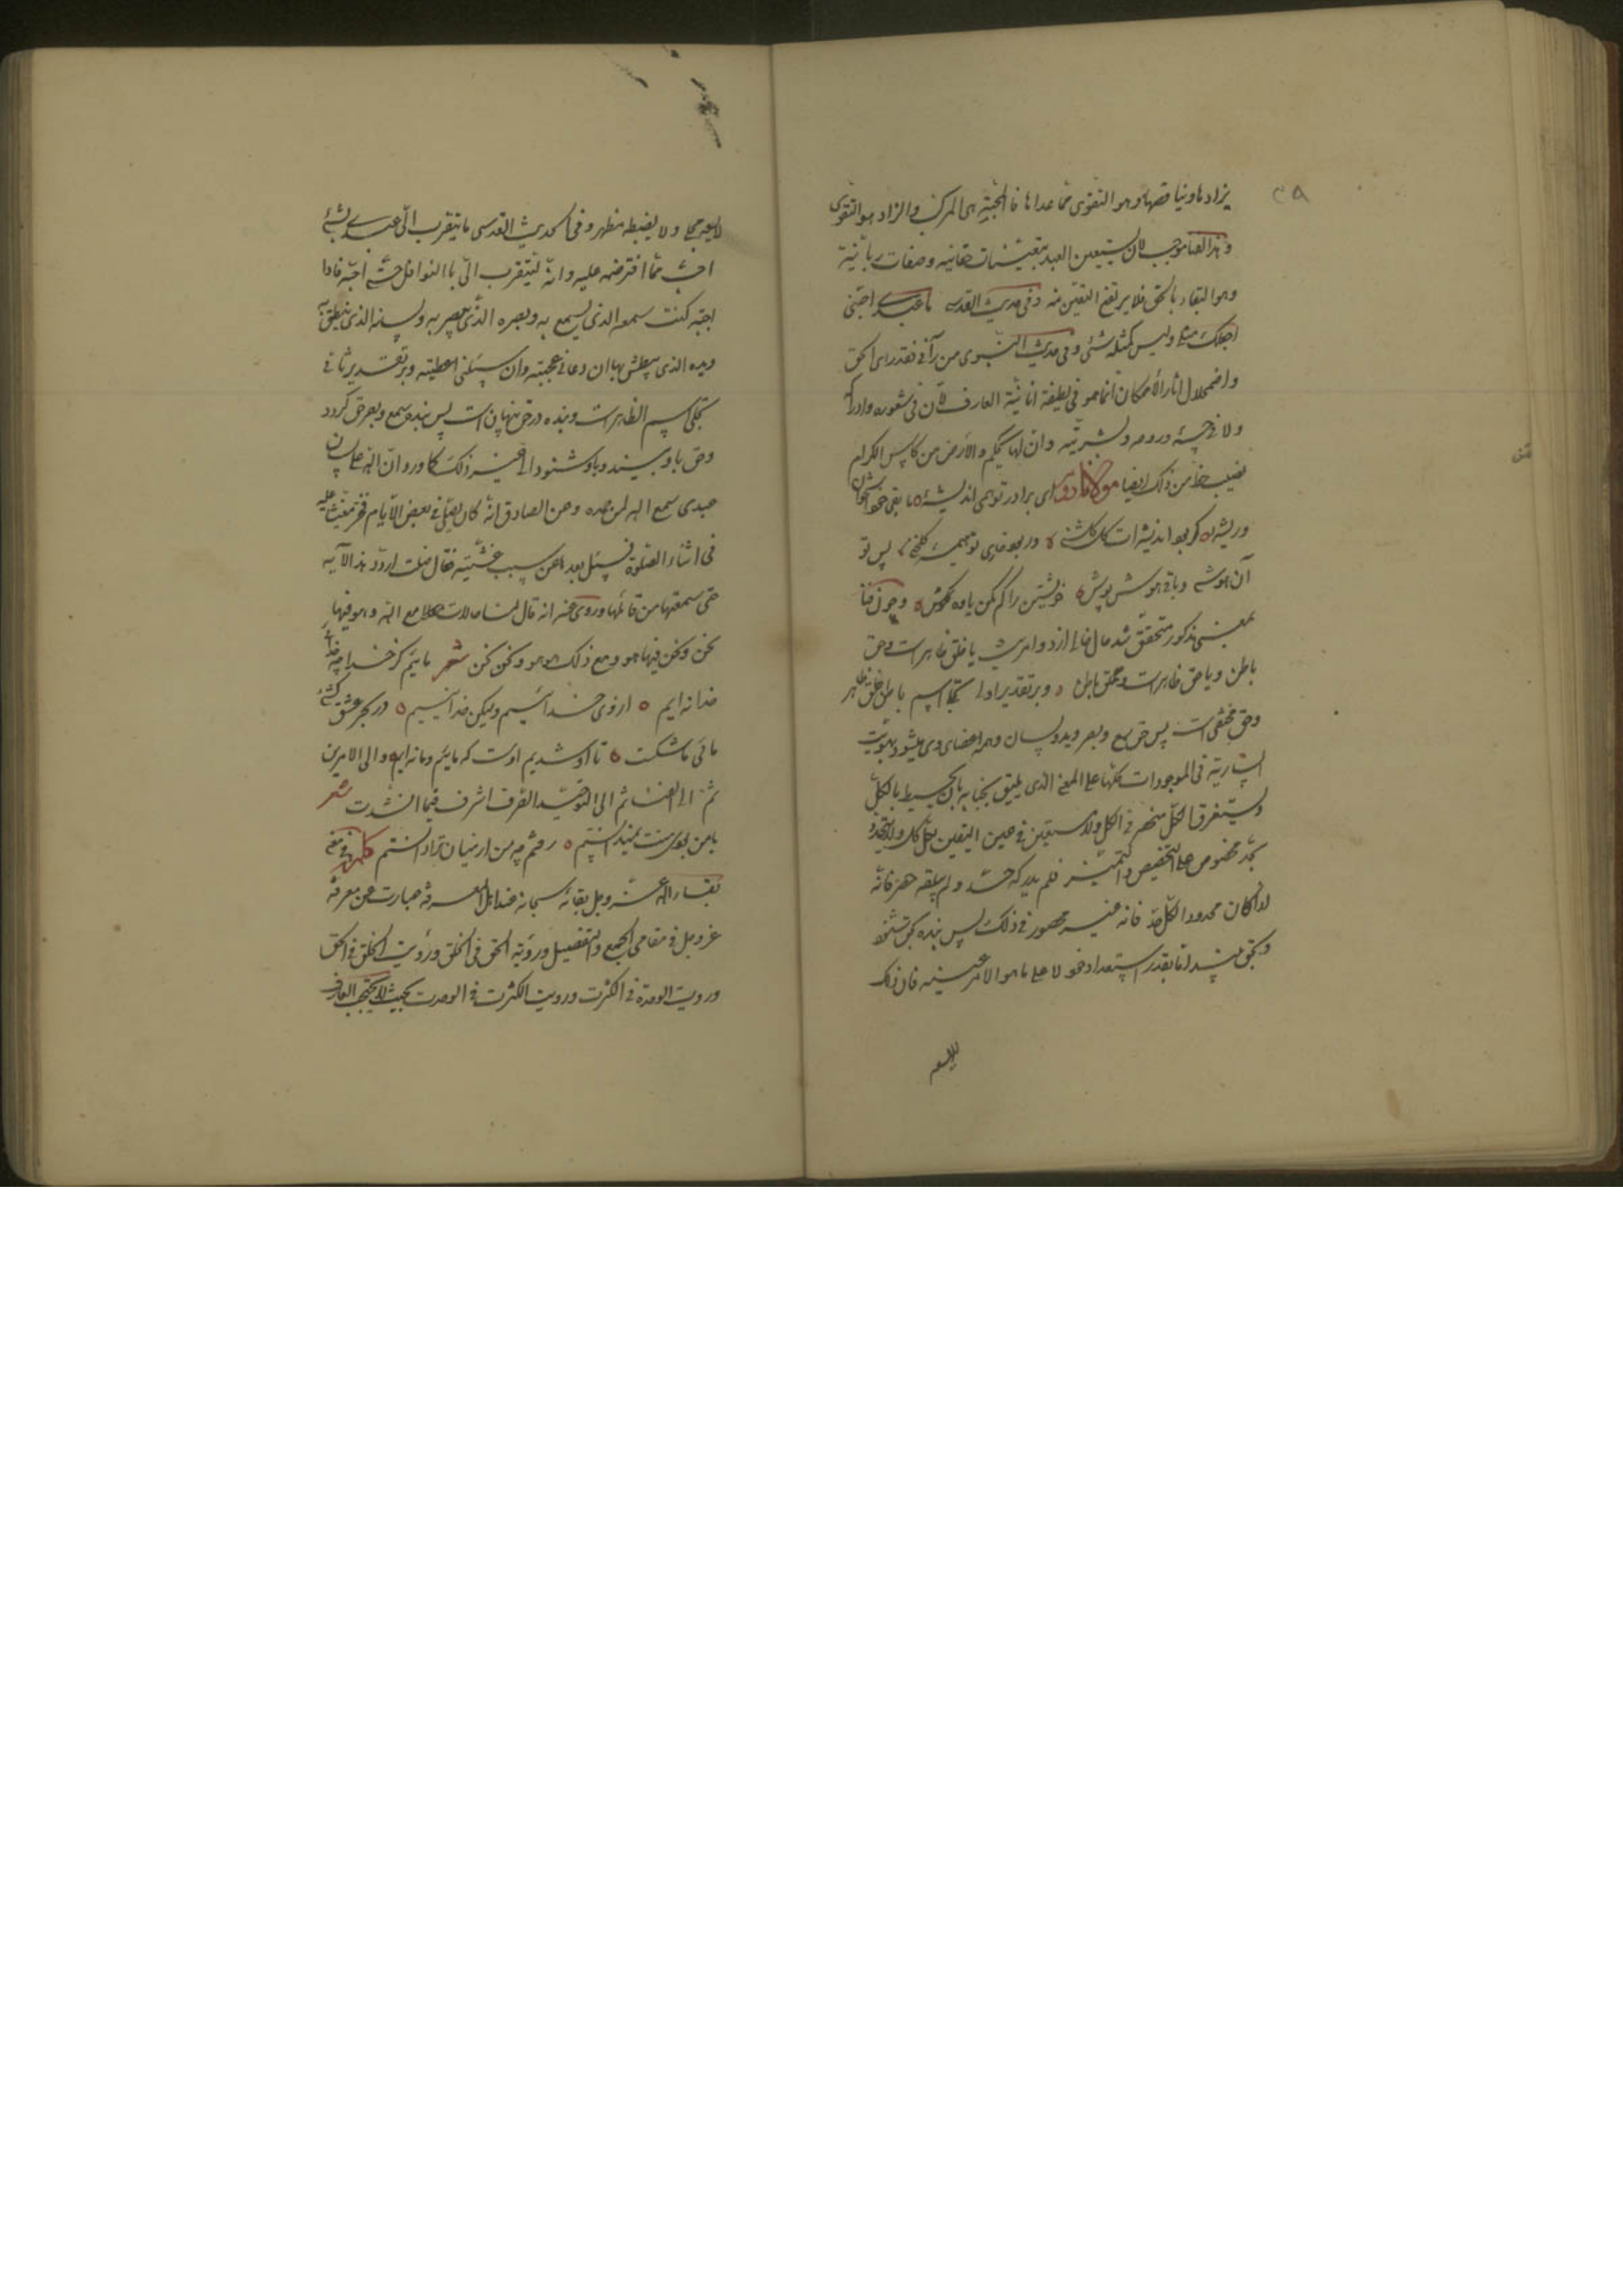 ٣٩
یزادها و نیاقضها و هو التقوی مما عداها فالمحبة هی المرکب والزاد هو التقوی
و هذا الفنا موجب لان یتعین العبد بتعینات حقانیه و صفات ربانیة
و هو البقاء بالحق فلا یرتفع التعین منه و فی حدیث القدسی یا عبدی اجبنی
اجعلک مثلی و لیس کمثله شئ و فی حدیث النبوی من رآنی فقد رای الحق
و اضمحلال اثار الامکان انما هو فی لطیفة انانیة العارف لان فی شعوره و ادراکه
ولا فی جسده و روحه و بشریته و ان لها بحکم و للارض من کاس الکرام
نصیب حظ من ذلک ایضا مولانا روم ای برادر تو همی اندیشهٔ ما بقی تو استخوان
و ریشهٔ کر بود اندیشه ات کل کلشنی ور بود خاری تو هیمه کلخنی پس تو
آن هوشی و باقی هوش پوش خویشتن را کم مکن یاوه مکوش و چون فنا
بمعنی مذکور متحقق شد حال خالی از دو امر نیست یا خلق ظاهرست و حق
باطن و یا حق ظاهرست و خلق باطن و بر تقدیر اول تجلی اسم باطن خلق ظاهر
و حق مخفی است پس حق سمع و بصر و ید و لسان و همه اعضای وی میشود بهویت
الساریة فی الموجودات کلها علی المعنی الذی یلیق بجنابه بان یحیط بالکل
و یستغرق الکل منحصر فی الکل ولا یتعین فی حین التعین بکل کل ولا یتحدد
بحد مخصوص علی التخصیص والتمییز فلم یدرکه حد و لم یبلغه حصر فانه
لو کان محدودا لکل حد فانه غیر محصور فی ذلک پس بنده بحق شنود
و بحق بیند اما بقدر استعداد خود لا علی ما هو الامر عینه فان ذلک
لا یسعه
لا یسعه مجلی ولا یضبطه مظهر و فی الحدیث القدسی ما یتقرب الی عبدی بشئ
احب مما افترضه علیه و انه لیتقرب الی باالنوافل حتی احبه فاذا
احبه کنت سمعه الذی یسمع به و بصره الذی یبصر به و لسانه الذی ینطق به
و یده الذی یبطش بها ان دعانی اجبته و ان سئلنی اعطیته و بر تقدیر ثانی
تجلی اسم الظاهر است و بنده در حق پنهان است پس بنده سمع و بصر حق کردد
و حق باو بیند و باو شنود الی غیر ذلک کما ورد ان الله علی لسان
عبدی سمع الله لمن حمده و عن الصادق انه کان یصلی فی بعض الایام فخر مغشیا علیه
فی اثناء الصلوة فسئل بعدها عن سبب غشیته فقال ما زلت اردد هذا الآیه
حتی سمعتها من قائلها و روی عنه انه قال لنا حالات مع الله و هو فیها
نحن و نحن فیها هو و مع ذلک هو هو و نحن نحن شعر مائیم کز خدا چه خدا
خدا نه ایم از وی جدا نئیم ولیکن خدا نئیم در بحر عشق کشتی
مائی ما شکست تا او شدیم اوست که مائیم و ما نه ایم و الی الامرین
ثم الی الفنا ثم الی التوحید الصرف اشرف فیما انشدت شعر
با من بودی منت نمیدانستم رفتم چو من از میان ترا دانستم کلمه فی معنی
بقاء الله عز و جل بقائه سبحانه عند اهل المعرفه عبارت عن معرفة
عز و جل فی مقامی الجمع والتفصیل و رؤیة الحق فی الخلق و رؤیت الخلق فی الحق
و رویت الوحدة فی الکثرت و رویت الکثرت فی الوحدت بحیث لا یحتجب العارف